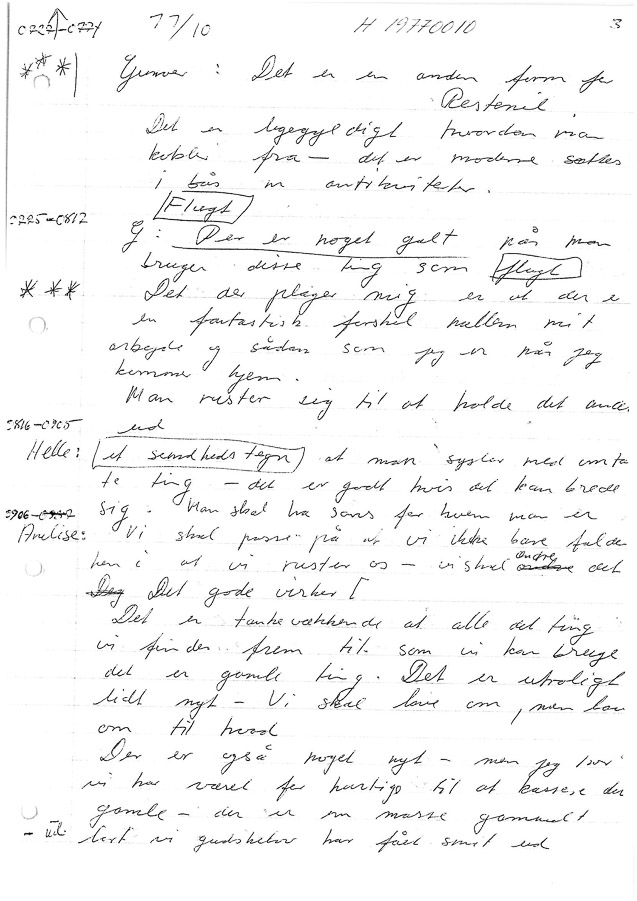 C222-C224 11/10 H 19770010 3
*** Gunver : Det er en anden form for
Restenil.
Det er ligegyldigt hvordan man
kobler fra - det er moderne sættes
i bås m antikviteter.
Flugt
C225-C812
G: Der er noget galt når man
bruger disse ting som flugt
*** Det der plager mig er at der e
en fantastisk forskel mellem mit
arbejde og sådan som jeg er når jeg
kommer hjem.
Man ruster sig til at holde det
ud
C816-C905
Helle: et sundhedstegn at man sysler med omta
te ting - det er godt hvis det kan brede
sig. Man skal ha sans for hvem man er
Anelise: Vi skal passe på at vi ikke bare falde
hen i at vi ruster os - vi skal ændre det
Det gode virker!
Det er tankevækkende at alle det ting
vi finder frem til som vi kan bruge
det er gamle ting. Det er utroligt
lidt nyt - Vi skal lave om, men lav
om til hvad
Der er også noget nyt - men jeg tror
vi har været for hurtige til at kassere det
gamle - der er en masse gammelt
- ud. vi gudskelov har fået smidt ud